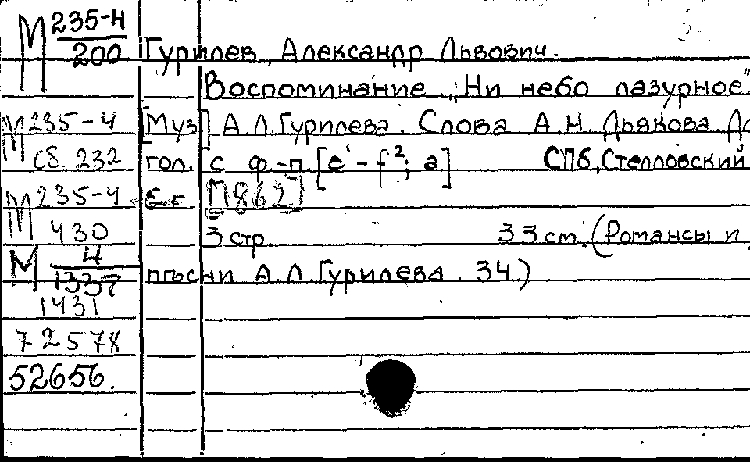 М 235-4/200 Гурилев, Александр Львович.
Воспоминание „Ни небо лазурное"
М 235-4 [Муз] А.Л.Гурилева. Слова А.Н. Дьякова. Дл
сб. 232 гол. с ф.-п. [e¹-f²; a] СПб, Стелловский
М 235-4 Б.г. [1862]
430 3 стр. 33 см. (Романсы и
М 4/1337 пѣсни А.Л.Гурилева. 34)
1431
72578
52656.